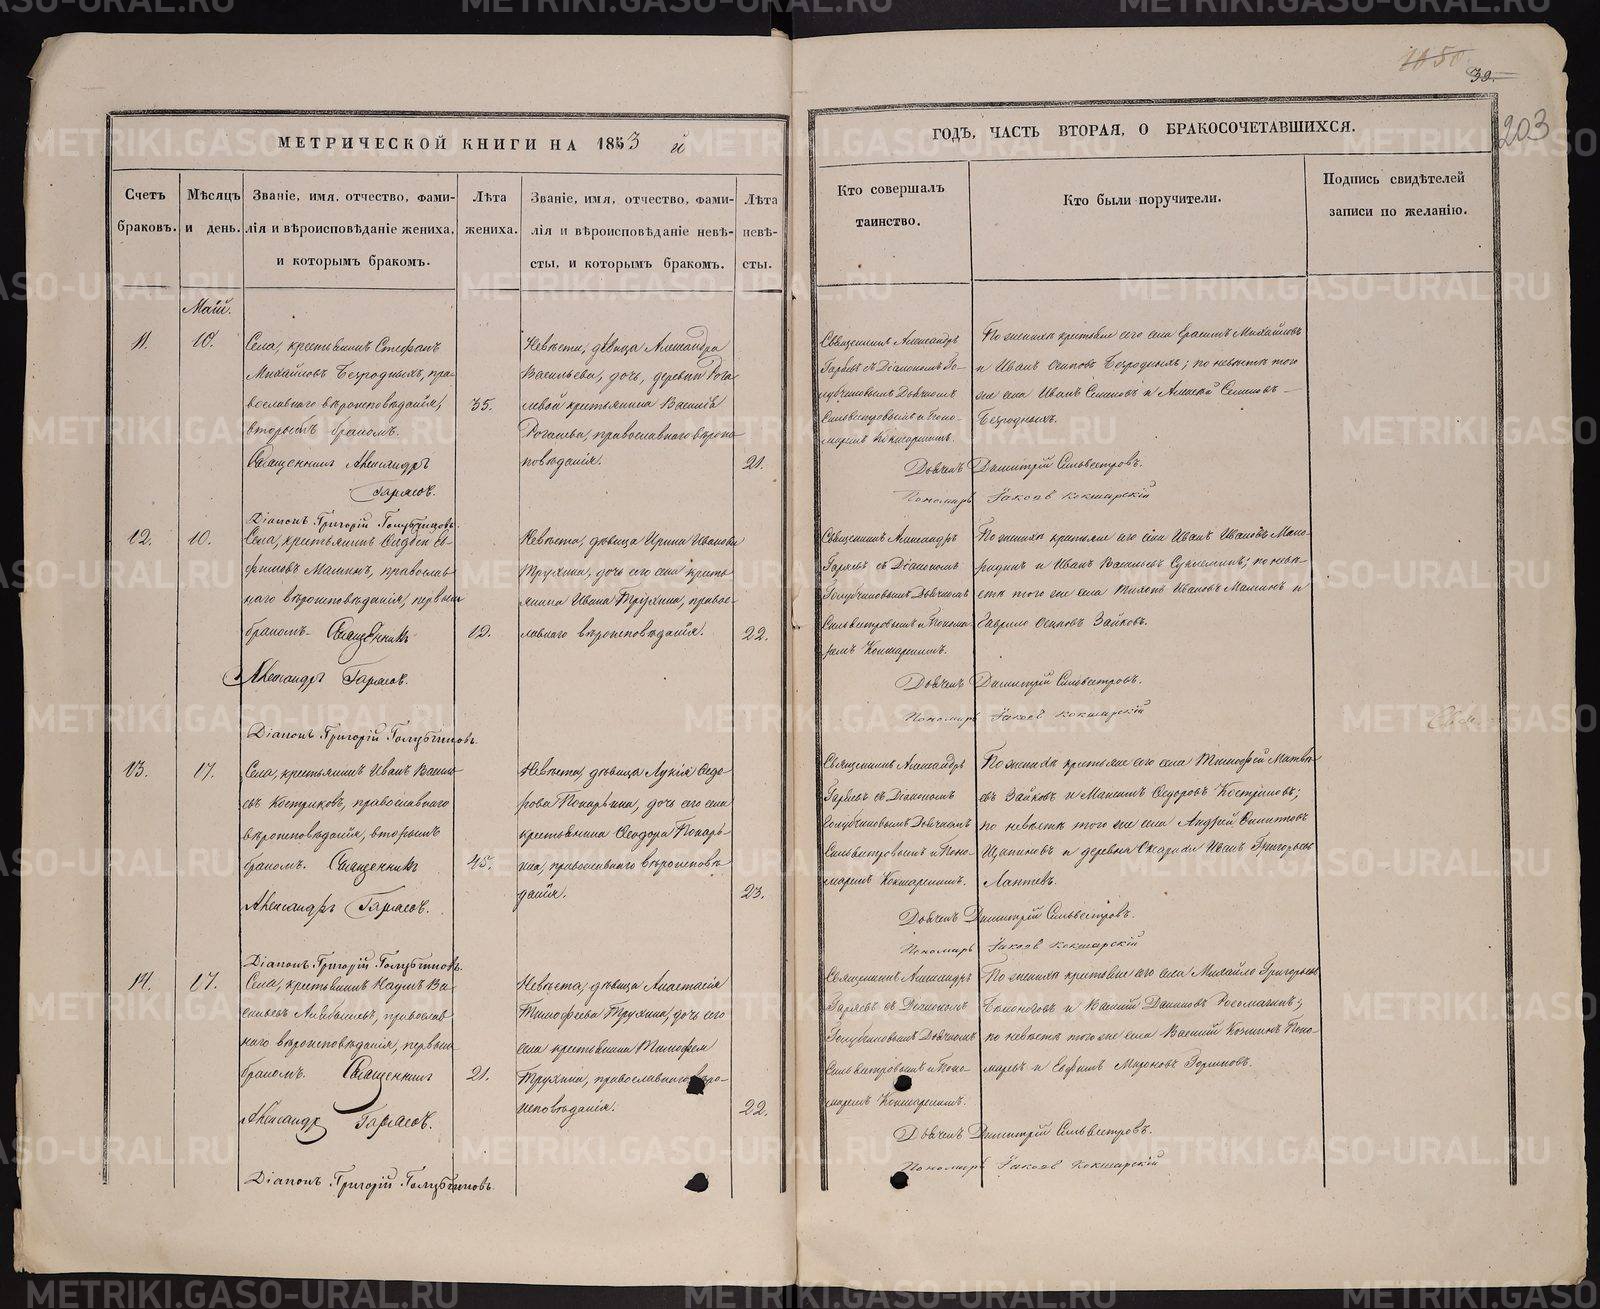 1050
39.
203
МЕТРИЧЕСКОЙ КНИГИ НА 1853 й
ГОДЪ, ЧАСТЬ ВТОРАЯ, О БРАКОСОЧЕТАВШИХСЯ.
Счетъ браковъ.
Мѣсяцъ и день.
Званіе, имя, отчество, фами-
лія и вѣроисповѣданіе жениха,
и которымъ бракомъ.
Лѣта
жениха.
Званіе, имя, отчество, фами-
лія и вѣроисповѣданіе невѣ-
сты, и которымъ бракомъ.
Лѣта
невѣ-
сты.
Кто совершалъ
таинство.
Кто были поручители.
Подпись свидѣтелей
записи по желанію.
Май.
11.
10.
Села, крестьянинъ Стефанъ
Михайловъ Безродныхъ, пра-
вославнаго вѣроисповѣданія,
вторымъ бракомъ.
35.
Священникъ Александръ
Гаряевъ.
Діаконъ Григорій Голубчиковъ.
Невѣста, дѣвица Александра
Васильева, дочь, деревни Рога-
левой крестьянина Василія
Рогалева, православнаго вѣроис-
повѣданія.
21.
Священникъ Александръ
Гаряевъ съ Діакономъ Го-
лубчиковымъ Дьячкомъ
Сильвестровымъ и Поно-
маремъ Кокшарскимъ.
По женихѣ крестьяне сего села Герасимъ Михайловъ
и Иванъ Осиповъ Безродныхъ; по невѣстѣ того
же села Иванъ Семеновъ и Алексѣй Семеновъ
Безродныхъ.
Дьячекъ Димитрій Сильвестровъ.
Пономарь Іаковъ Кокшарскій
12.
10.
Села, крестьянинъ Андрей Еф-
фимовъ Малкинъ, православ-
наго вѣроисповѣданія, первымъ
бракомъ.
19.
Священникъ
Александръ Гаряевъ.
Діаконъ Григорій Голубчиковъ.
Невѣста, дѣвица Ирина Иванова
Трухина, дочь сего села кресть-
янина Ивана Трухина, право-
славнаго вѣроисповѣданія.
22.
Священникъ Александръ
Гаряевъ съ Діакономъ
Голубчиковымъ Дьячкомъ
Сильвестровымъ и Понома-
ремъ Кокшарскимъ.
По женихѣ крестьяне сего села Иванъ Ивановъ
и Иванъ Васильевъ; по невѣ-
стѣ того же села Ивановъ Малкинъ и
Гаврило Осиповъ Зайковъ.
Дьячекъ Димитрій Сильвестровъ.
Пономарь Іаковъ Кокшарскій
13.
17.
Села, крестьянинъ Иванъ Василь-
евъ Костриковъ, православнаго
вѣроисповѣданія, вторымъ
бракомъ.
45.
Священникъ
Александръ Гаряевъ.
Діаконъ Григорій Голубчиковъ.
Невѣста, дѣвица Лукія Ѳедо-
рова Токарьина, дочь сего села
крестьянина Ѳеодора Токарь-
ина, православнаго вѣроисповѣ-
данія.
23.
Священникъ Александръ
Гаряевъ съ Діакономъ
Голубчиковымъ Дьячкомъ
Сильвестровымъ и Поно-
маремъ Кокшарскимъ.
По женихѣ крестьяне сего села Тимофей Матвѣ-
евъ Зайковъ и Максимъ Ѳедоровъ Костриковъ;
по невѣстѣ того же села Андрей
и деревни Иванъ Григорьевъ
Лаптевъ.
Дьячекъ Димитрій Сильвестровъ.
Пономарь Іаковъ Кокшарскій
14.
17.
Села, крестьянинъ Наумъ Ва-
сильевъ, православ-
наго вѣроисповѣданія, первымъ
бракомъ.
21.
Священникъ
Александръ Гаряевъ.
Діаконъ Григорій Голубчиковъ.
Невѣста, дѣвица Анастасія
Тимофеева Трухина, дочь сего
села крестьянина Тимофея
Трухина, православнаго вѣро-
исповѣданія.
22.
Священникъ Александръ
Гаряевъ съ Діакономъ
Голубчиковымъ Дьячкомъ
Сильвестровымъ и Поно-
маремъ Кокшарскимъ.
По женихѣ крестьяне сего села Михайло Григорьевъ
Бѣлоноговъ и Василій Даниловъ Росомагинъ;
по невѣстѣ того же села Василій Козминъ Поно-
маревъ и Ефимъ Мироновъ.
Дьячекъ Димитрій Сильвестровъ.
Пономарь Іаковъ Кокшарскій
METRIKI.GASO-URAL.RU